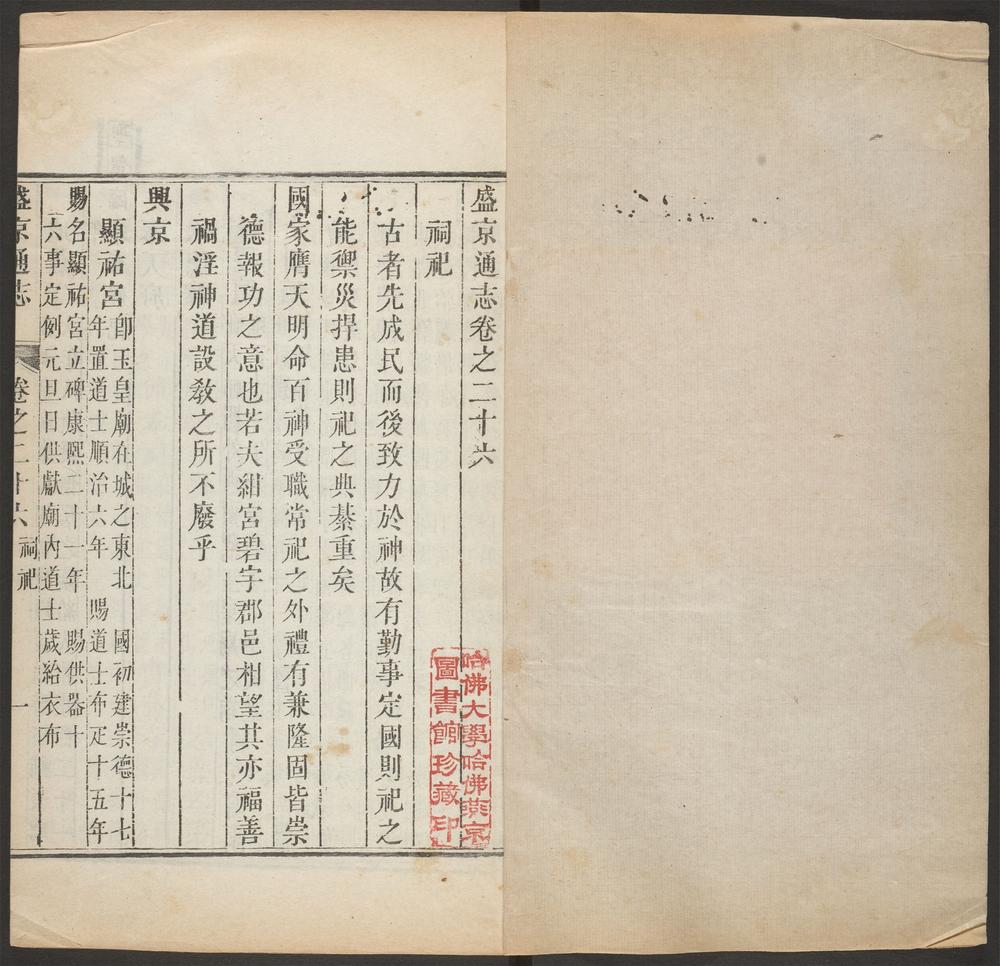 盛京通志卷之二十六
祠祀
古者先成民而後致力於神故有勤事定國則祀之
能禦災捍患則祀之典綦重矣
國家膺天明命百神受職常祀之外禮有兼隆固皆崇
德報功之意也若夫紺宮碧宇郡邑相望其亦福善
禍淫神道設教之所不廢乎
興京
顯祐宮卽玉皇廟在城之東北 國初建崇德十七
年置道士順治六年 賜道士布疋十五年
賜名顯祐宮立碑康熙二十一年 賜供器十
六事定例元旦日供獻廟內道士歲給衣布
盛京通志 卷之二十六 祠祀 一
哈佛大學哈佛燕京
圖書館珍藏印